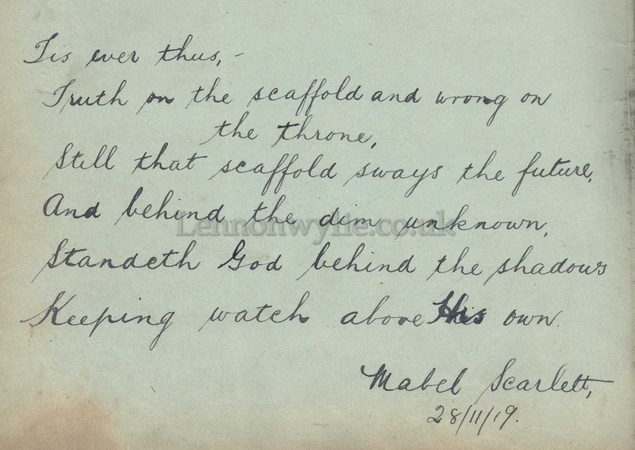 Tis ever thus, -
Truth on the scaffold and wrong on
the throne,
Still that scaffold sways the future,
And behind the dim unknown,
Lennonwylie.co.uk
Standeth God behind the shadows
Keeping watch above His own.
Mabel Scarlett,
28/11/19.